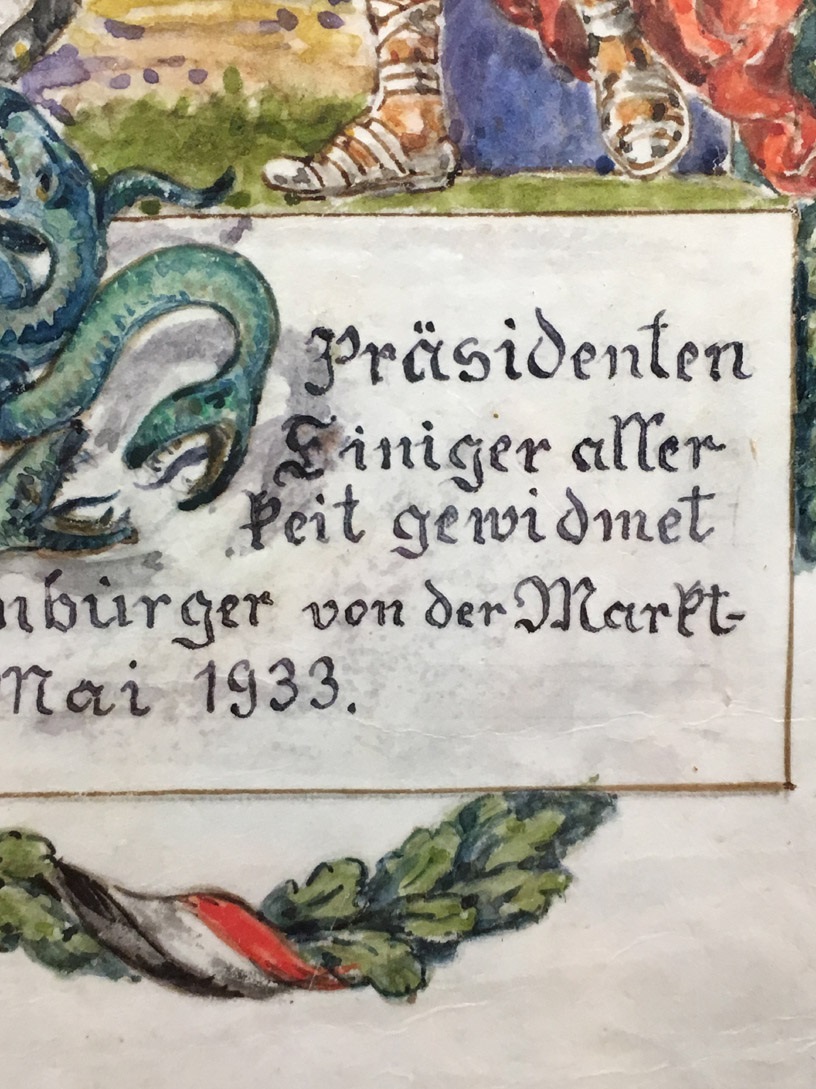 Präsidenten
Einiger aller
keit gewidmet
nbürger von der Markt-
Mai 1933.